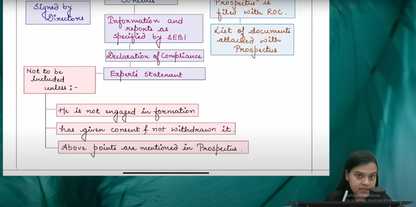 Signed by
Directors
Contents
Information and
reports as
specified by SEBI
Declaration of Compliance
Expert's Statement
Prospectus is
filed with ROC.
List of documents
attached with
Prospectus
Not to be
included
unless :-
He is not engaged in formation
has given consent & not withdrawn it
Above points are mentioned in Prospectus.